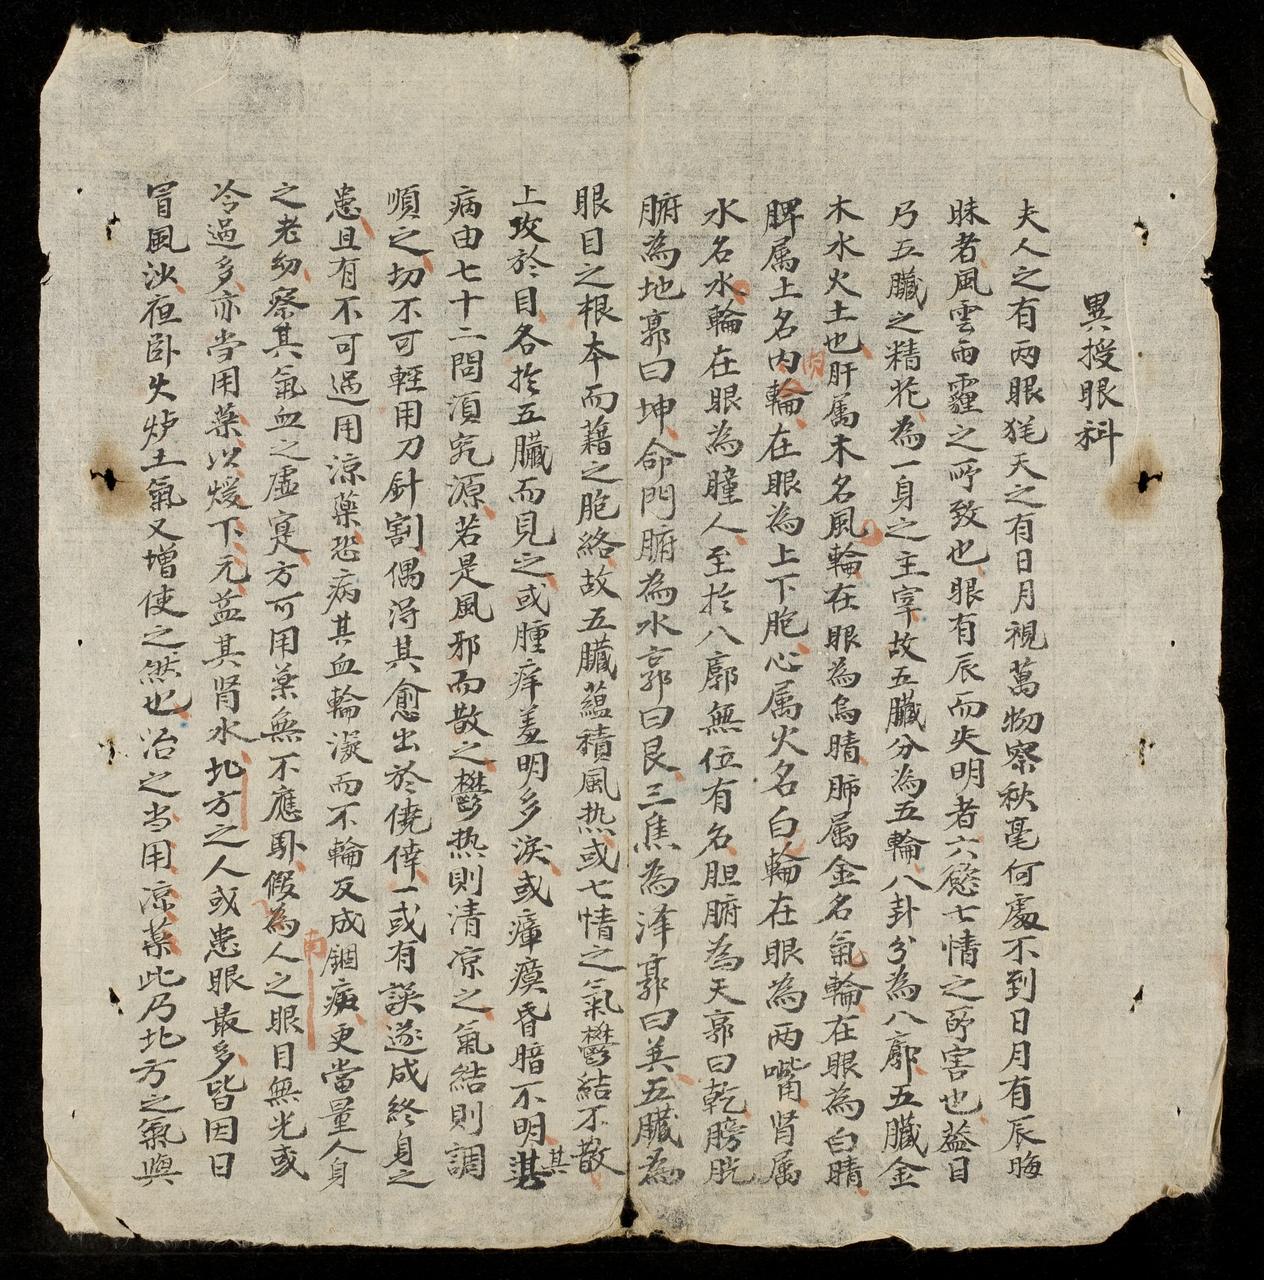 異授眼科
夫人之有两眼猶天之有日月視萬物察秋毫何處不到日月有辰晦
昧者風雲雨霾之所致也眼有辰而失明者六慾七情之所害也益目
乃五臟之精花為一身之主宰故五臟分為五輪八卦分為八廓五臟金
木水火土也肝属木名風輪在眼為烏睛肺属金名氣輪在眼為白睛
脾属土名肉輪在眼為上下胞心属火名白輪在眼為两嘴肾属
水名水輪在眼為瞳人至扵八廓無位有名胆腑為天郭曰乾膀胱
腑為地郭曰坤命門腑為水郭曰艮三焦為泽郭曰兊五臟為
眼目之根本而藉之胞絡故五臟蘊積風热或七情之氣鬱結不散
上攻於目各扵五臟而見之或腫痒羞明多淚或瘴瘼昏暗不明其
病由七十二問須究源若是風邪而散之鬱热則清凉之氣結則調
順之切不可輕用刀針割偶淂其愈出於僥倖一或有誤遂成終身之
患且有不可过用凉藥恐病其血輪凝而不輪反成錮病更當量人身
之老幼察其氣血之虚寔方可用薬無不應馭假為人之眼目無光或
冷過多亦当用薬以煖下元益其肾水北方之人或患眼最多皆因日
冒風沙夜卧火炉土氣又增使之然也治之当用凉薬此乃北方之氣與
南